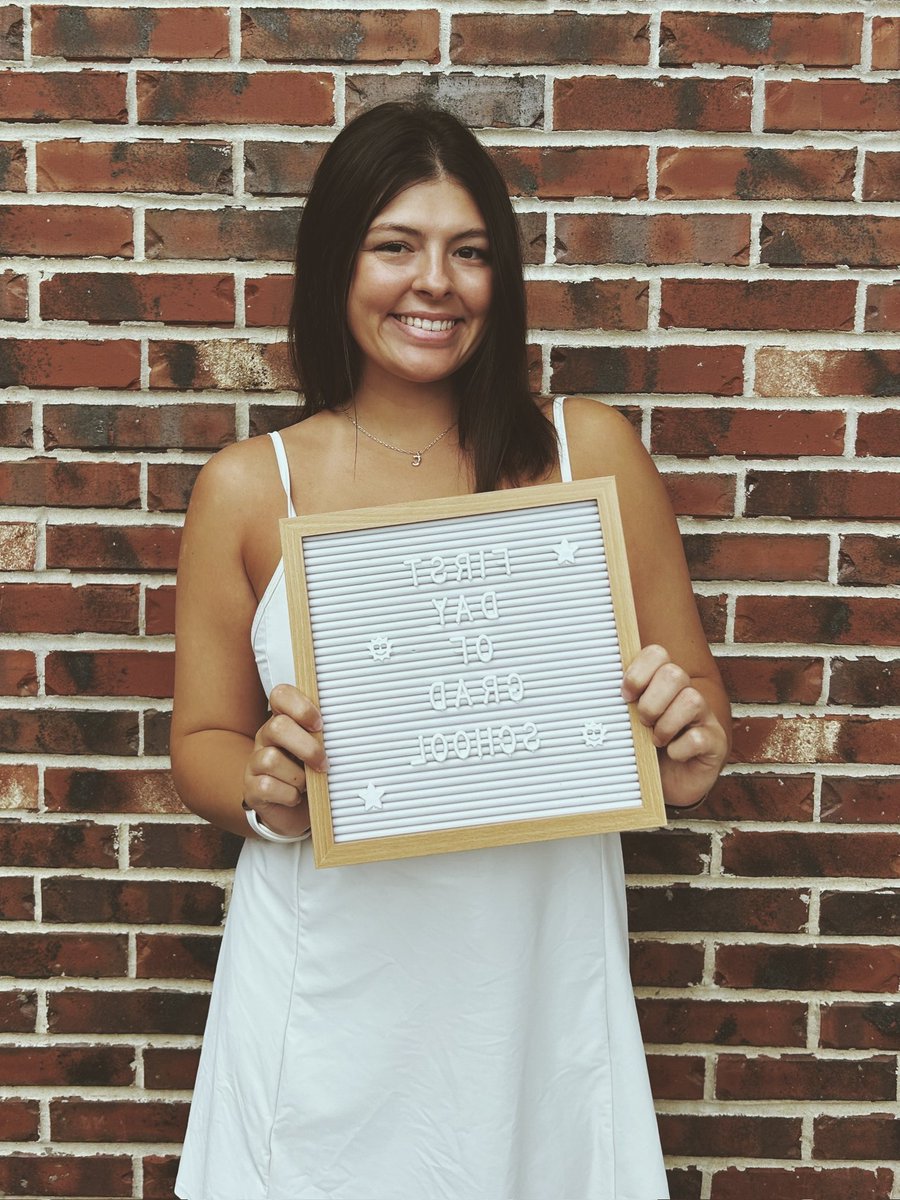 FIRST
DAY
OF
GRAD
SCHOOL